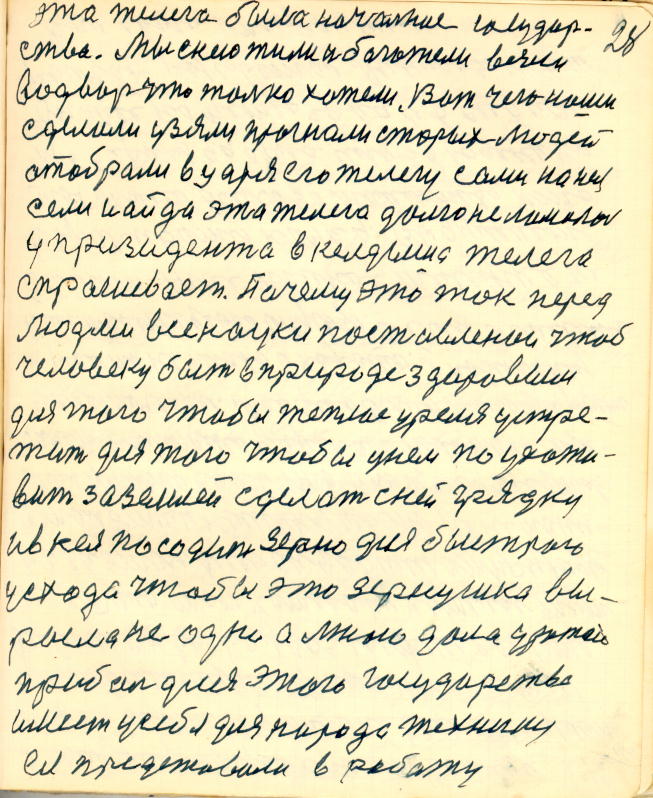 эта телега была началное государ-
28
ства. Мы скло тили и богатели всяки
водвор что толко хотели, Вот чего наши
сделали узяли прогнали старых людей
отобрали в у аря его телегу сами на неё
сели и айда эта телега долго не
у призидента в телега
спрашевает. Почему это так перед
людми все науки поставленои чтоб
человеку быт в природе здоровым
для того чтобы теплое уремя устре-
тит для того чтобы унем по ухажи-
ват заземлей сделат с ней грядку
и в нея посодит зерно для быстрого
усхода чтобы это зернушка вы-
расла не одно а много дала урожай
прибыл для этого государство
имеет у себя для народа технику
её в работу